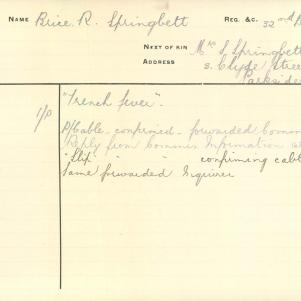 NAME Brice. R. Springbett
REG. &C. 32nd B
NEXT OF KIN Mrs S. Springbett
ADDRESS 2. Clyde Stree
Parkside
"Trench fever."
I/P
P/Cable - confirmed - forwarded Commr
Reply from Commr Information
"Slip" " " confirming cabl
Same forwarded Enquirer